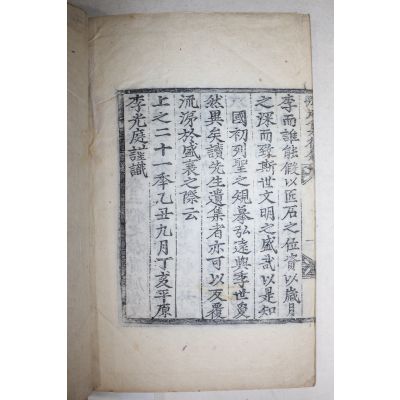 李而誰能假以匡石之位資以歲月
之深而致斯世文明之盛哉以是知
國初列聖之規摹弘遠與季世夐
然異矣讀先生遺集者亦可以反覆
流涕於盛衰之際云
上之二十一年乙丑九月丁亥平原
李光庭謹識